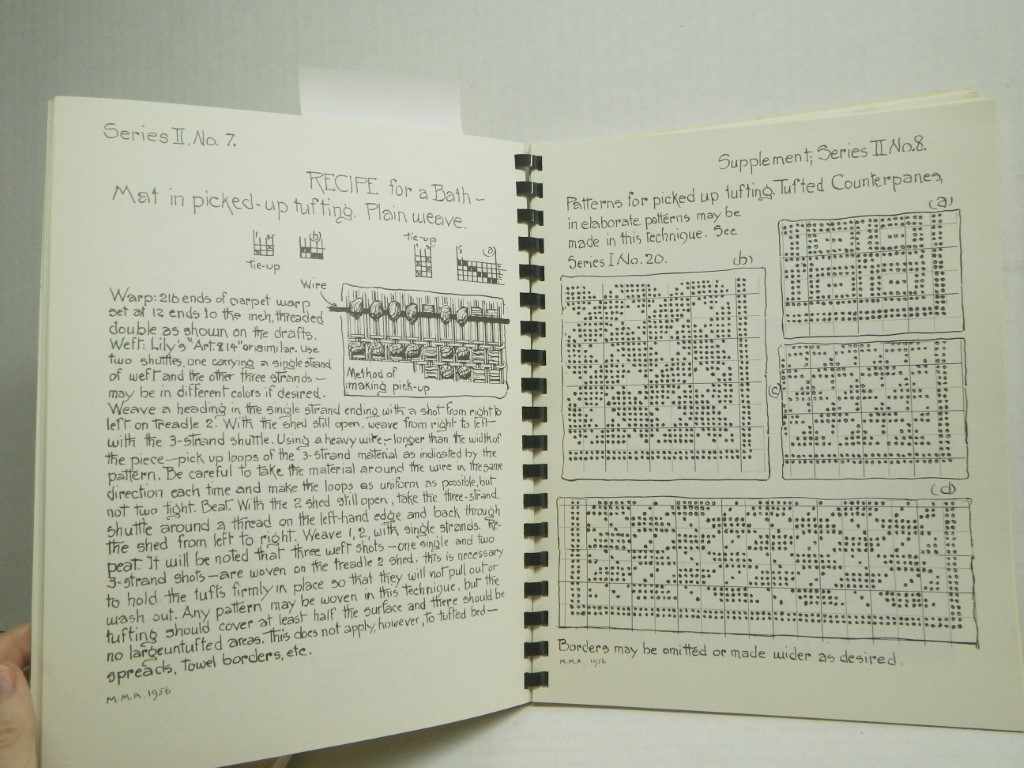 Series II. No. 7.
RECIPE for a Bath-
Mat in picked-up tufting. Plain weave.
(b)
tie-up
tie-up
(a)
Wire
Warp: 216 ends of carpet warp
set at 12 ends to the inch, threaded
double as shown on the drafts.
Weft: Lily's "Art. 814" or similar. Use
two shuttles, one carrying a single strand
of weft and the other three strands -
may be in different colors if desired.
Method of
making pick-up
Weave a heading in the single strand ending with a shot from right to
left on treadle 2. With the shed still open, weave from right to left -
with the 3-strand shuttle. Using a heavy wire - longer than the width of
the piece - pick up loops of the 3-strand material as indicated by the
pattern. Be careful to take the material around the wire in the same
direction each time and make the loops as uniform as possible, but
not two tight. Beat. With the 2 shed still open, take the three-strand
shuttle around a thread on the left-hand edge and back through
the shed from left to right. Weave 1, 2, with single strands. Re-
peat. It will be noted that three weft shots - one single and two
3-strand shots - are woven on the treadle 2 shed. This is necessary
to hold the tufts firmly in place so that they will not pull out or
wash out. Any pattern may be woven in this technique, but the
tufting should cover at least half the surface and there should be
no large untufted areas. This does not apply, however, To tufted bed-
spreads, Towel borders, etc.
M.M.A. 1956
Supplement; Series II No. 8.
Patterns for picked up tufting. Tufted Counterpanes,
in elaborate patterns may be
made in this technique. See
Series I No. 20.
(a)
(b)
(c)
(d)
Borders may be omitted or made wider as desired.
M.M.A. 1956